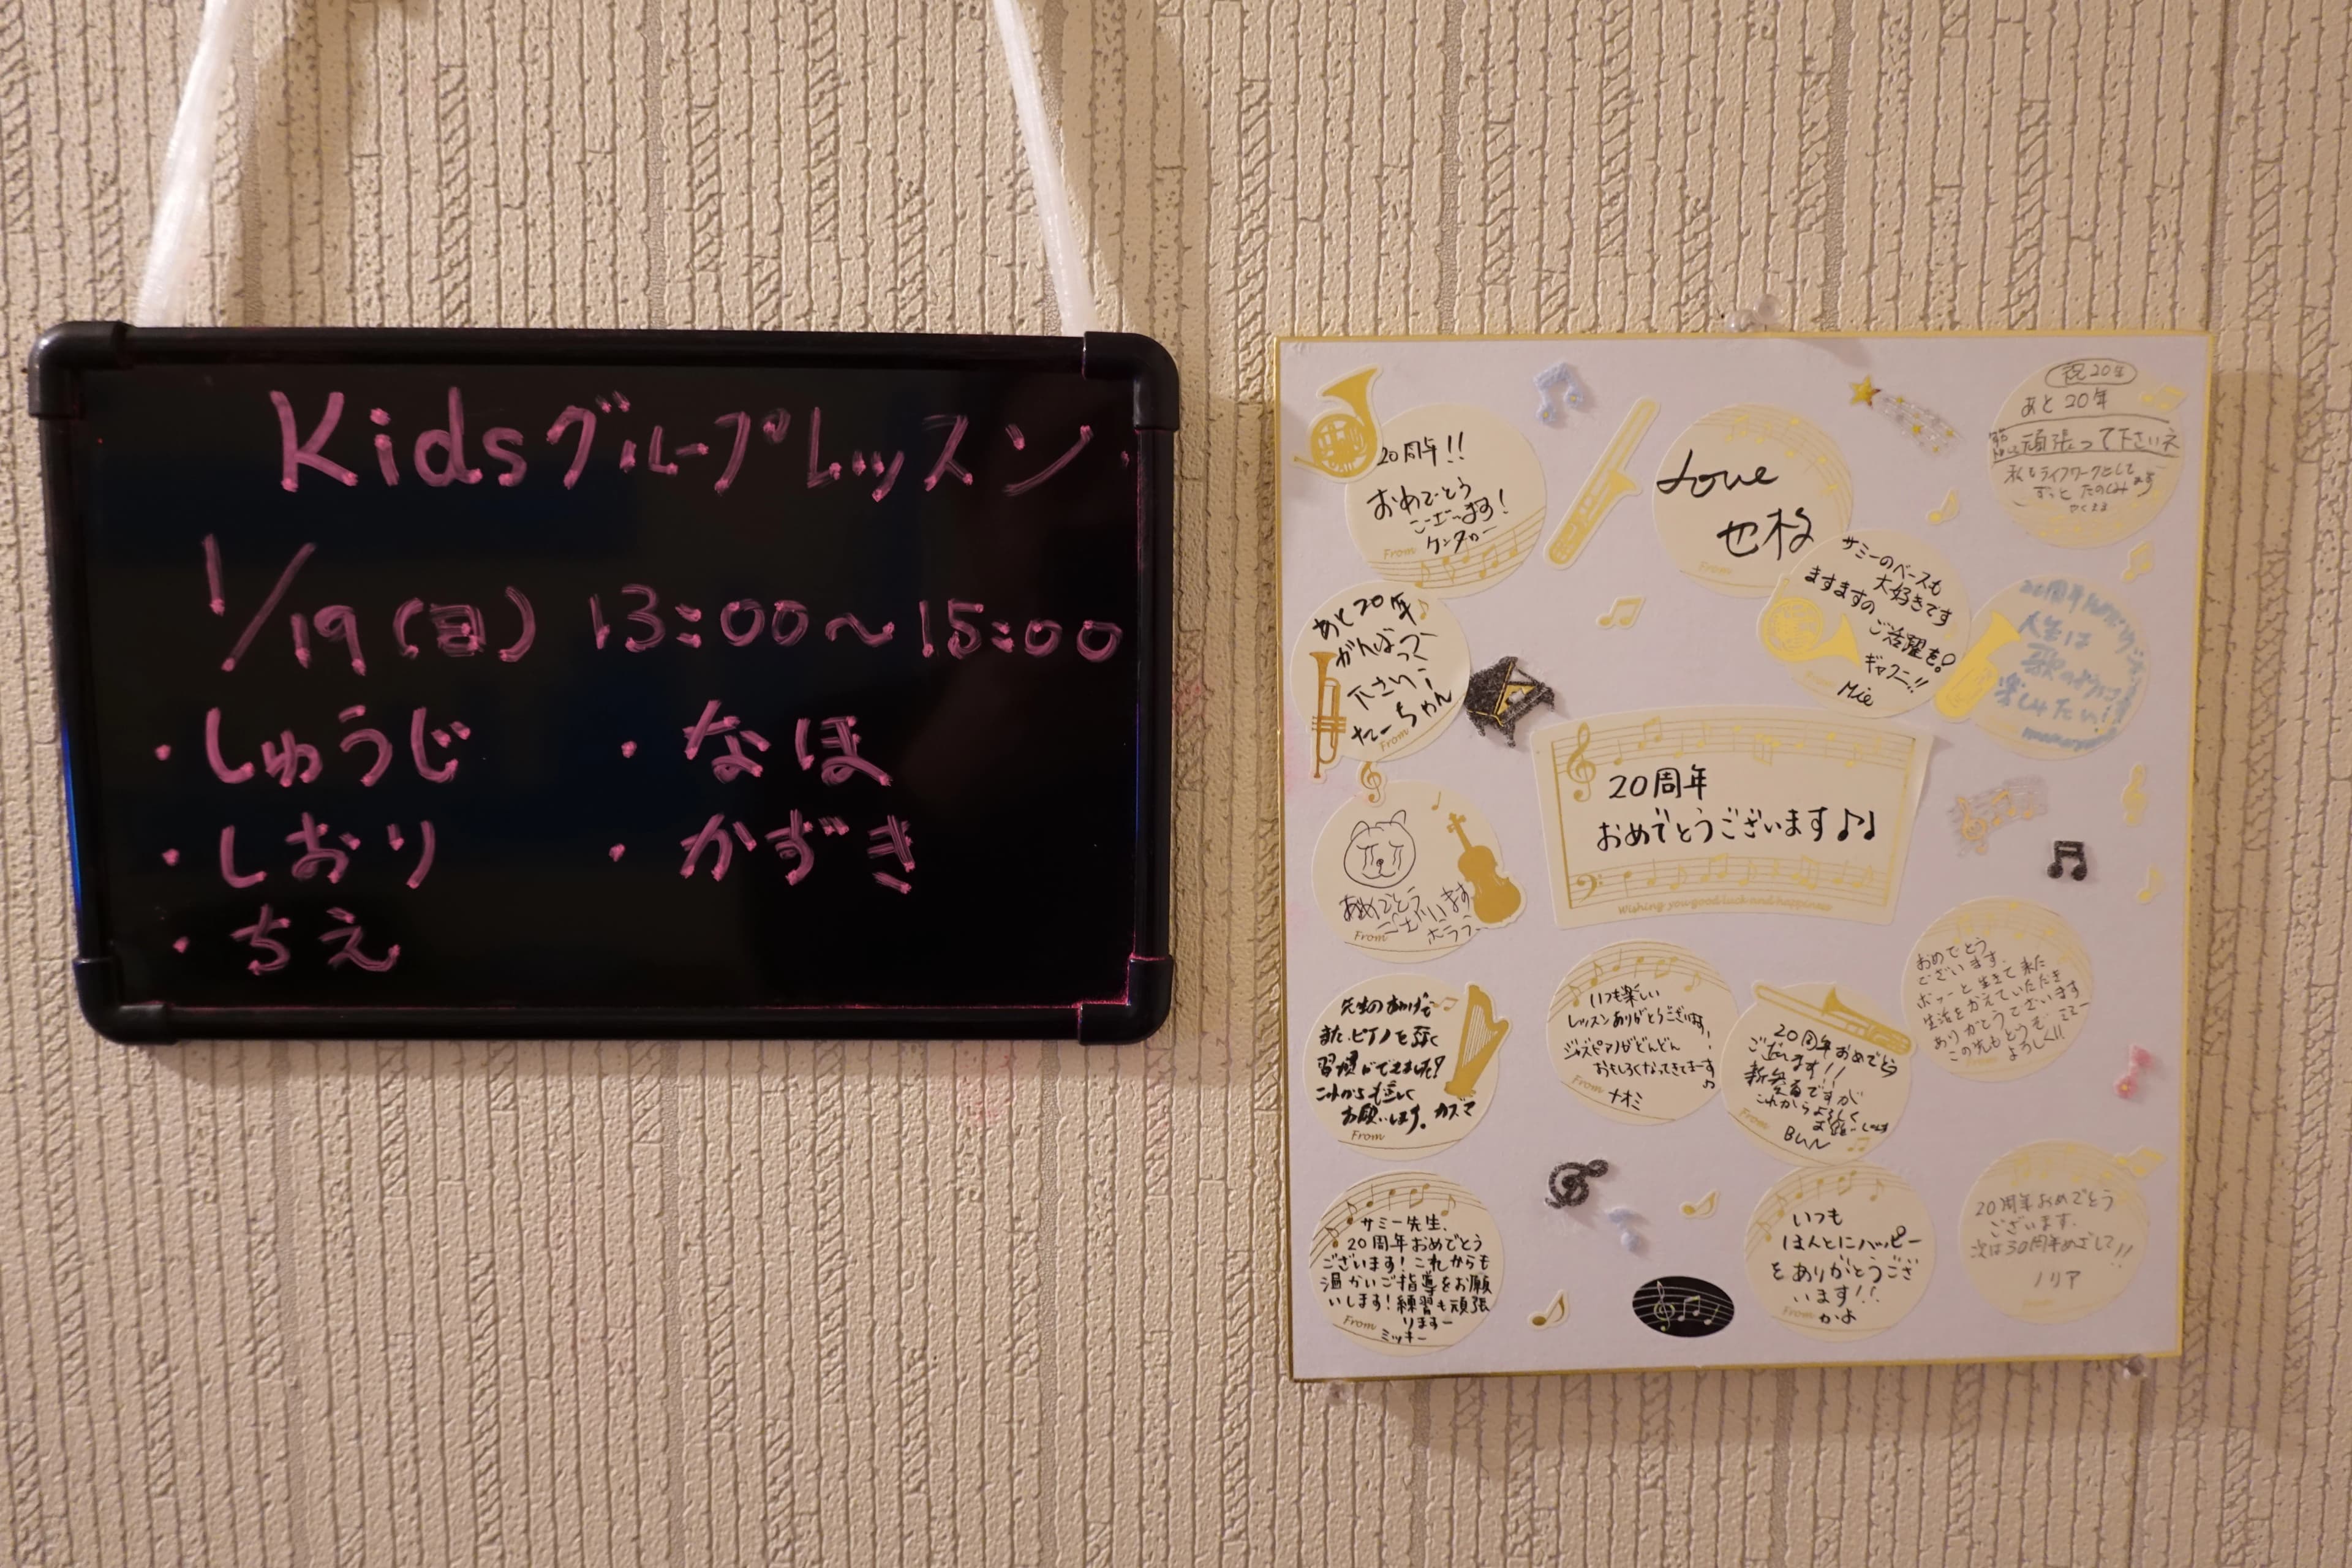 Kidsグループレッスン
1/19(日) 13:00～15:00
・しゅうじ
・なほ
・しおり
・かずき
・ちえ
20周年!!
おめでとう
ございます!
ケンタロー
From
Love
From
祝20年
あと20年
頑張って下さいネ
私もライフワークとして
ずっとたのしみます
サミーのベースも
大好きです
ますますの
ご活躍を!
ギャクニー!!
Mie
あと20年
がんばって
下さい
From
人生は
歌のように
楽しみたい!
20周年
おめでとうございます♪♩
Wishing you good luck and happiness
おめでとう
ございます
From
おめでとう
ございます。
ボァーと生きて来た
生活をかえていただき
ありがとうございます
この先もどうぞ
よろしく!!
ミミー
先生のおかげで
また、ピアノを弾く
習慣ができました!
これからも宜しく
お願いします。カズマ
From
いつも楽しい
レッスンありがとうございます!
ジャズピアノがどんどん
おもしろくなってきてまーす♫
From
ナオミ
20周年おめでとう
ございます!!
新参者ですが
これからよろしく
お願いします
From
サミー先生、
20周年おめでとう
ございます!これからも
温かいご指導をお願
いします!練習も頑張
りますー
From
ミッキー
いつも
ほんとにハッピー
をありがとうござ
います!!
From
かよ
20周年おめでとう
ございます。
次は30周年めざして!!
ノリア